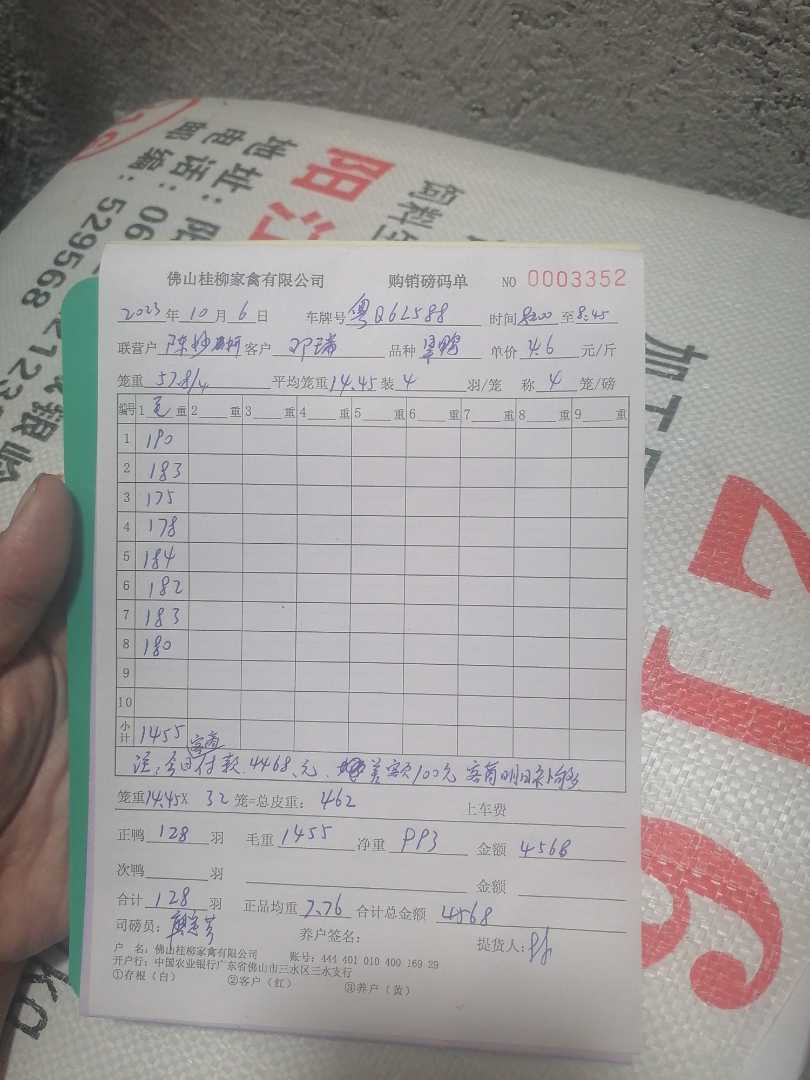 地址：阳
电话：06
邮编：529568
阳江
饲料
加工
佛山桂柳家禽有限公司 购销磅码单 NO 0003352
2023年10月6日 车牌号粤Q62588 时间8:00至8:45
联营户 陈妙 客户 邓瑞 品种 单价4.6元/斤
笼重57.8/4 平均笼重14.45装4羽/笼 称4笼/磅
编号 1毛重 2 重 3 重 4 重 5 重 6 重 7 重 8 重 9 重
1 190
2 183
3 175
4 178
5 184
6 182
7 183
8 180
9
10
小计 1455
客商
注：今日付款4468元、差额100元 客商明日补够
笼重14.45X 32笼=总皮重：462 上车费
正鸭128羽 毛重1455 净重993 金额4568
次鸭 羽 金额
合计128羽 正品均重7.76 合计总金额4568
司磅员： 养户签名： 提货人：
户 名：佛山桂柳家禽有限公司 账号：444 401 010 400 169 29
开户行：中国农业银行广东省佛山市三水区三水支行
①存根（白） ②客户（红） ③养户（黄）